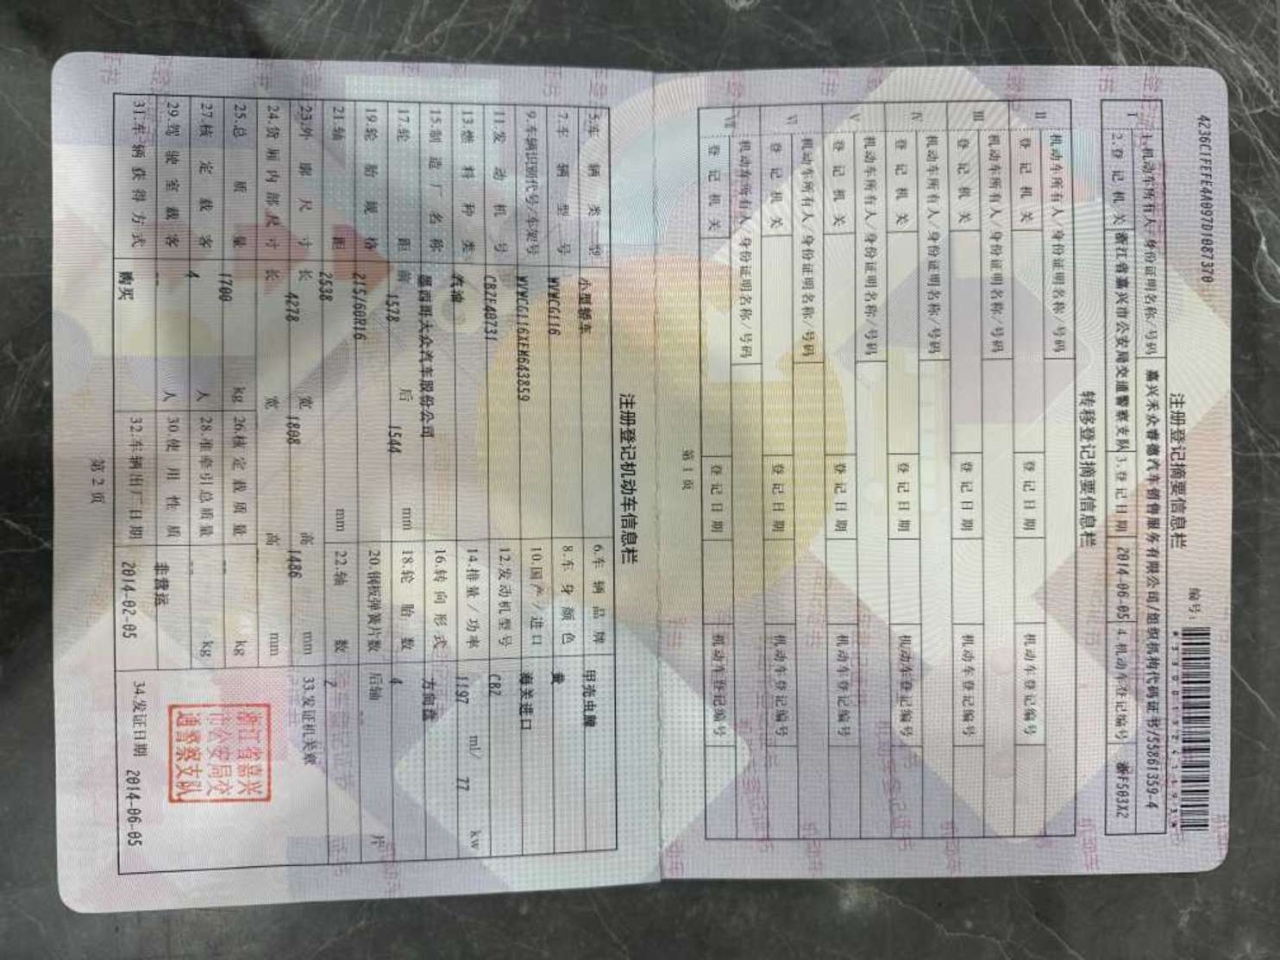 4236C1FEFE4A097D1087370
编号:
注册登记摘要信息栏
I
1.机动车所有人/身份证明名称/号码 嘉兴禾众睿德汽车销售服务有限公司/组织机构代码证书/55861359-4
2.登记机关 浙江省嘉兴市公安局交通警察支队 3.登记日期 2014-06-05 4.机动车登记编号 浙F503X2
转移登记摘要信息栏
II
机动车所有人/身份证明名称/号码
登记机关 登记日期 机动车登记编号
III
机动车所有人/身份证明名称/号码
登记机关 登记日期 机动车登记编号
IV
机动车所有人/身份证明名称/号码
登记机关 登记日期 机动车登记编号
V
机动车所有人/身份证明名称/号码
登记机关 登记日期 机动车登记编号
VI
机动车所有人/身份证明名称/号码
登记机关 登记日期 机动车登记编号
VII
机动车所有人/身份证明名称/号码
登记机关 登记日期 机动车登记编号
第1页
注册登记机动车信息栏
5.车辆类型 小型轿车 6.车辆品牌 甲壳虫牌
7.车辆型号 WVWCG116 8.车身颜色 黄
9.车辆识别代号/车架号 WVWCG116XEM643859 10.国产/进口 海关进口
11.发动机号 CBZE40731 12.发动机型号 CBZ
13.燃料种类 汽油 14.排量/功率 1197 ml/ 77 kw
15.制造厂名称 墨西哥大众汽车股份公司 16.转向形式 方向盘
17.轮距 前 1578 后 1544 mm 18.轮胎数 4
19.轮胎规格 215/60R16 20.钢板弹簧片数 后轴 -- 片
21.轴距 2538 mm 22.轴数 2
23.外廓尺寸 长 4278 宽 1808 高 1486 mm
33.发证机关章
24.货厢内部尺寸 长 宽 高 mm
25.总质量 1700 kg 26.核定载质量 -- kg
27.核定载客 4 人 28.准牵引总质量 -- kg
29.驾驶室载客 -- 人 30.使用性质 非营运
31.车辆获得方式 购买 32.车辆出厂日期 2014-02-05 34.发证日期 2014-06-05
浙江省嘉兴
市公安局交
通警察支队
第2页